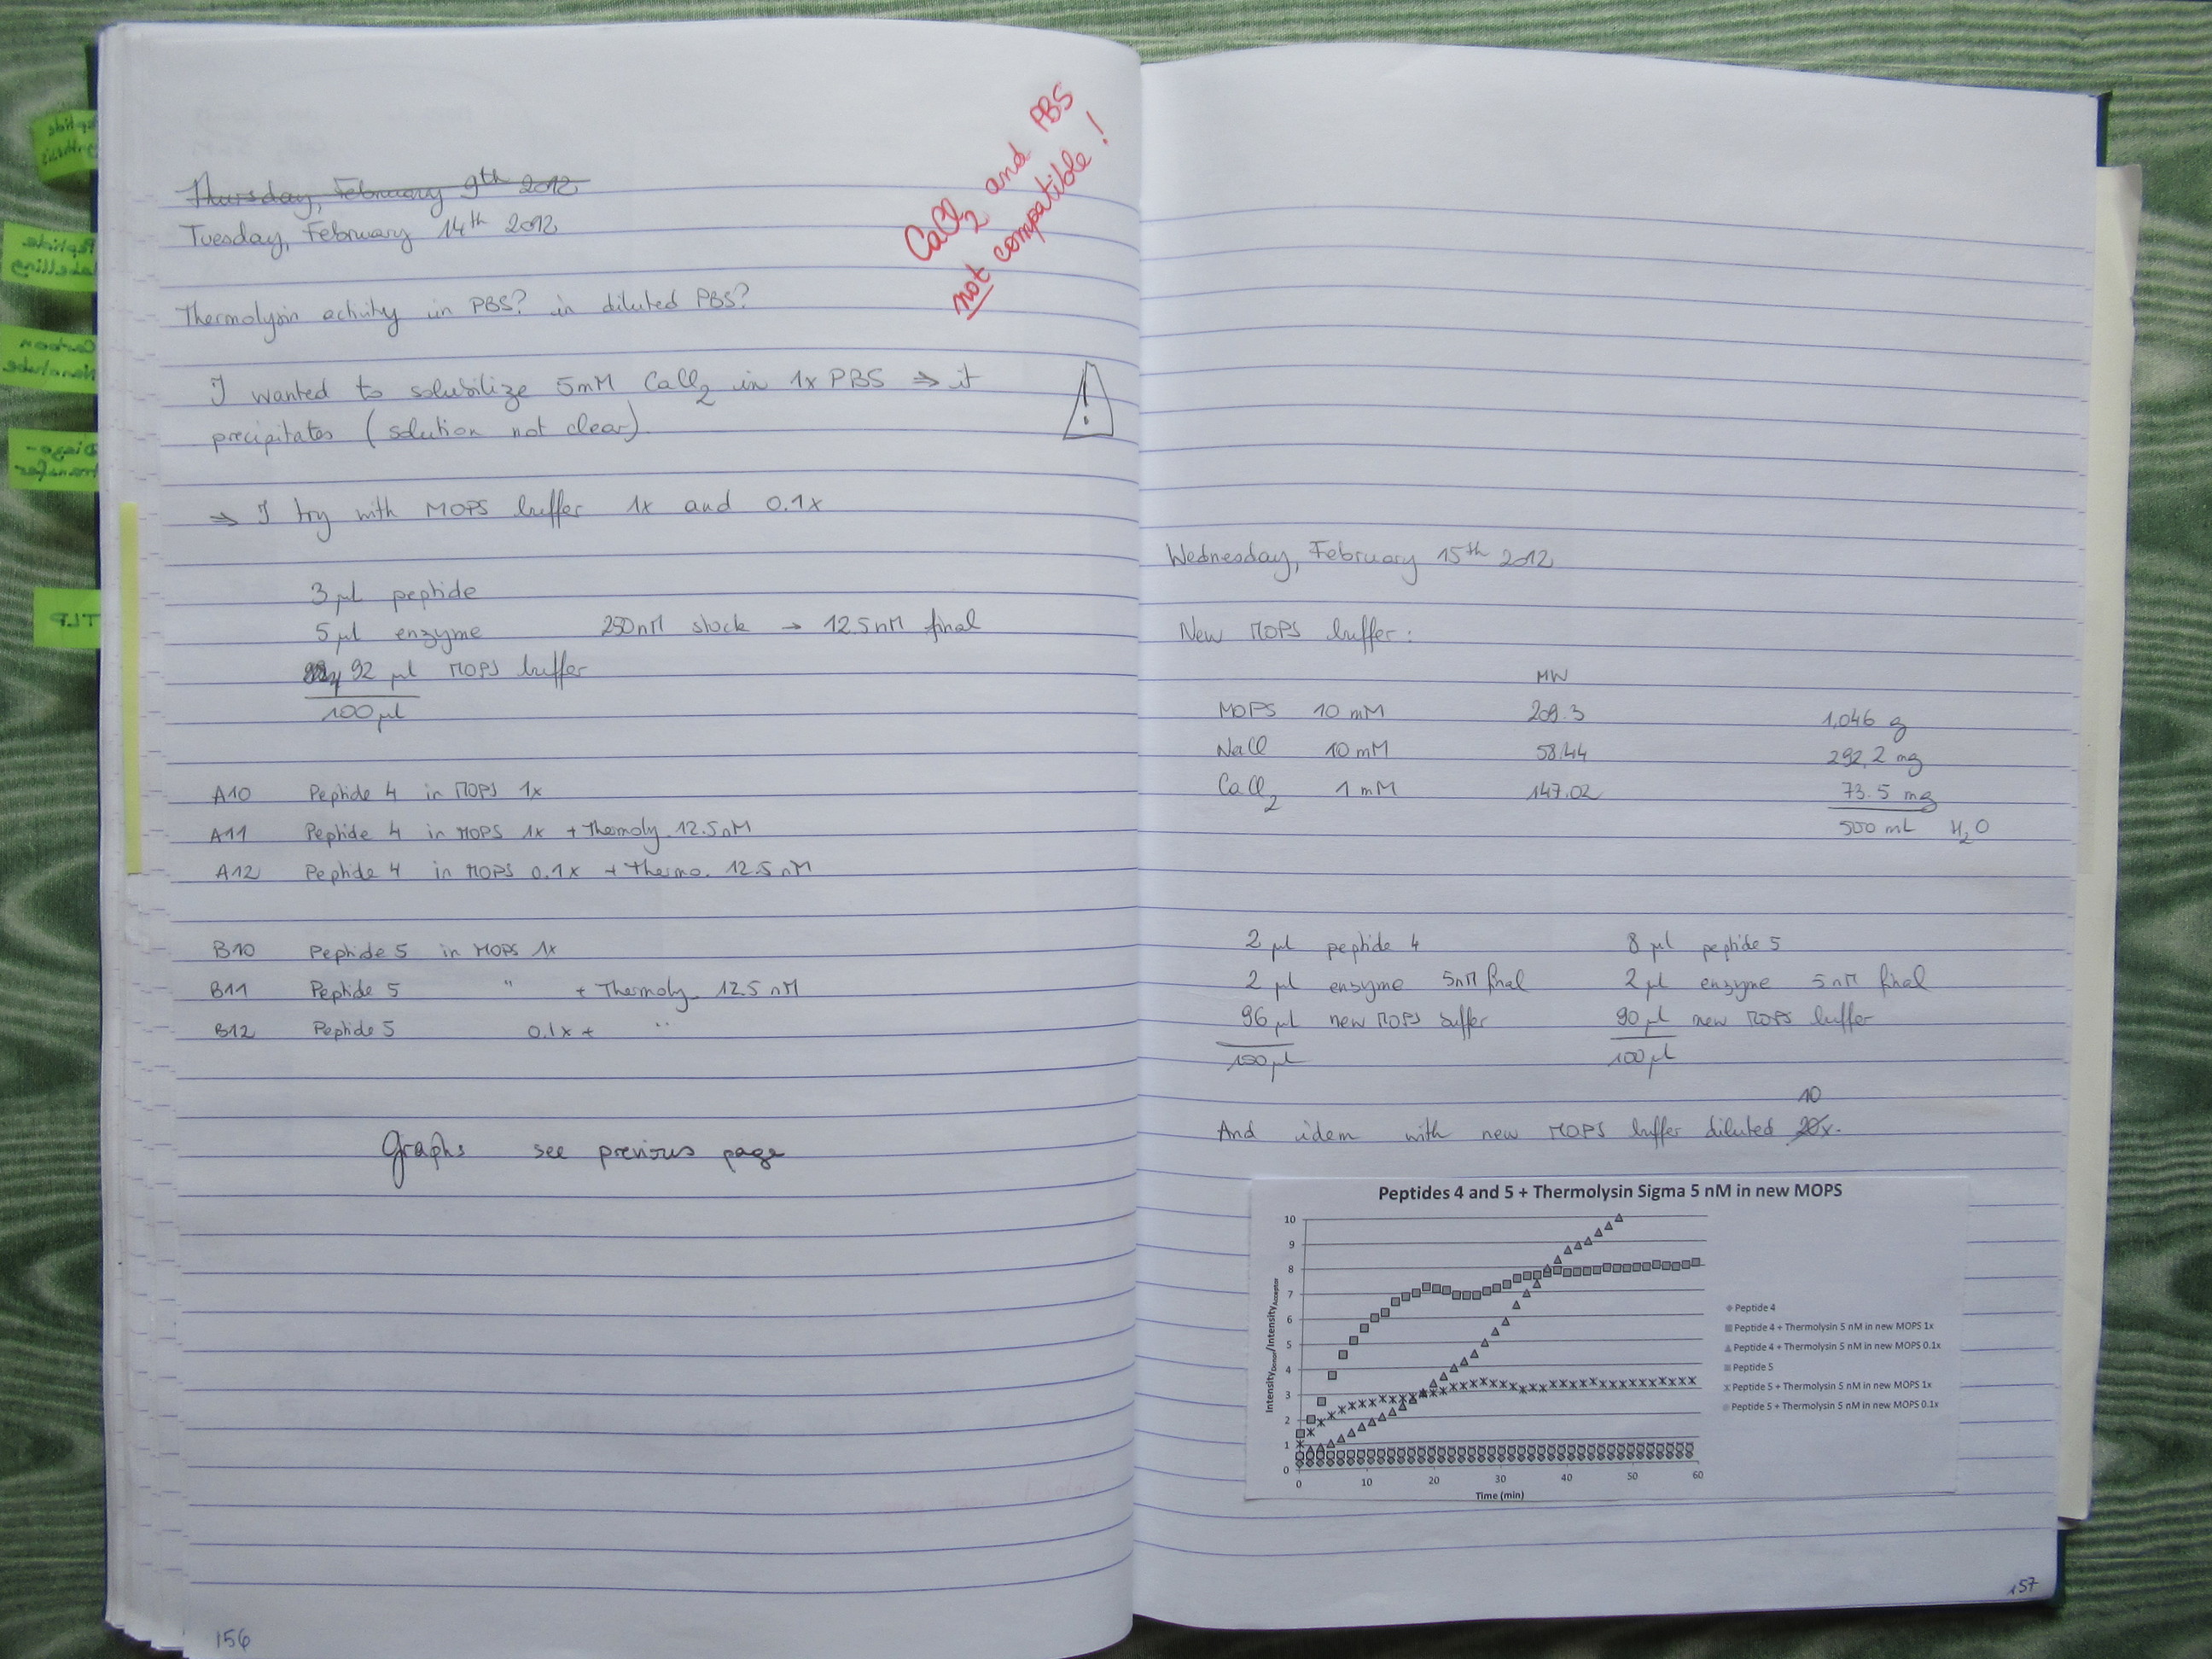 CaCl2 and PBS
not compatible!
Thursday, February 9th 2012
Tuesday, February 14th 2012
Thermolysin activity in PBS? in diluted PBS?
I wanted to solubilize 5mM CaCl2 in 1x PBS ⇒ it
precipitates (solution not clear)
!
⇒ I try with MOPS buffer 1x and 0.1x
3 µl peptide
5 µl enzyme 250nM stock → 12.5nM final
92 µl MOPS buffer
100 µl
A10 Peptide 4 in MOPS 1x
A11 Peptide 4 in MOPS 1x + Thermoly. 12.5nM
A12 Peptide 4 in MOPS 0.1x + Thermo. 12.5 nM
B10 Peptide 5 in MOPS 1x
B11 Peptide 5 " + Thermoly. 12.5 nM
B12 Peptide 5 0.1x + "
Graphs see previous page
156
Peptide
Peptide
labelling
Carbon
Nanotube
Diazo-
transfer
TLP
Wednesday, February 15th 2012
New MOPS buffer:
MW
MOPS 10 mM 209.3 1,046 g
NaCl 10 mM 58.44 292,2 mg
CaCl2 1 mM 147.02 73.5 mg
500 mL H2O
2 µl peptide 4 8 µl peptide 5
2 µl enzyme 5nM final 2 µl enzyme 5 nM final
96 µl new MOPS buffer 90 µl new MOPS buffer
100 µl 100 µl
10
And idem with new MOPS buffer diluted 20x.
Peptides 4 and 5 + Thermolysin Sigma 5 nM in new MOPS
10
9
8
7
6
5
4
3
2
1
0
IntensityDonor/IntensityAcceptor
0 10 20 30 40 50 60
Time (min)
Peptide 4
Peptide 4 + Thermolysin 5 nM in new MOPS 1x
Peptide 4 + Thermolysin 5 nM in new MOPS 0.1x
Peptide 5
Peptide 5 + Thermolysin 5 nM in new MOPS 1x
Peptide 5 + Thermolysin 5 nM in new MOPS 0.1x
157